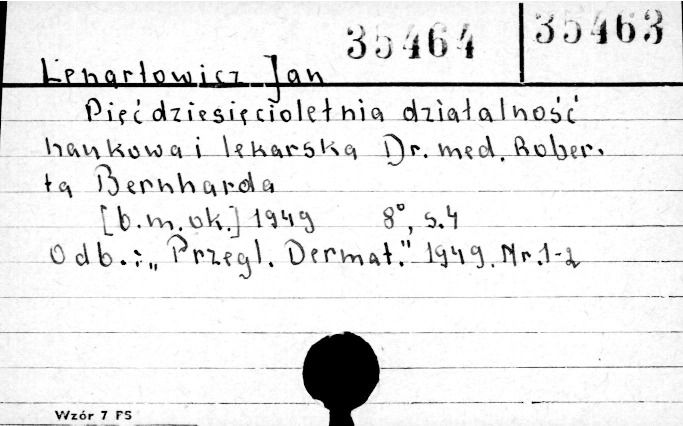 35464 35463
Lenartowicz Jan
Pięćdziesięcioletnia działalność
naukowa i lekarska Dr. med. Rober.
ta Bernharda
[b.m.ok.] 1949 8°, s.4
Odb.: „Przegl. Dermat." 1949. Nr. 1-2
Wzór 7 FS